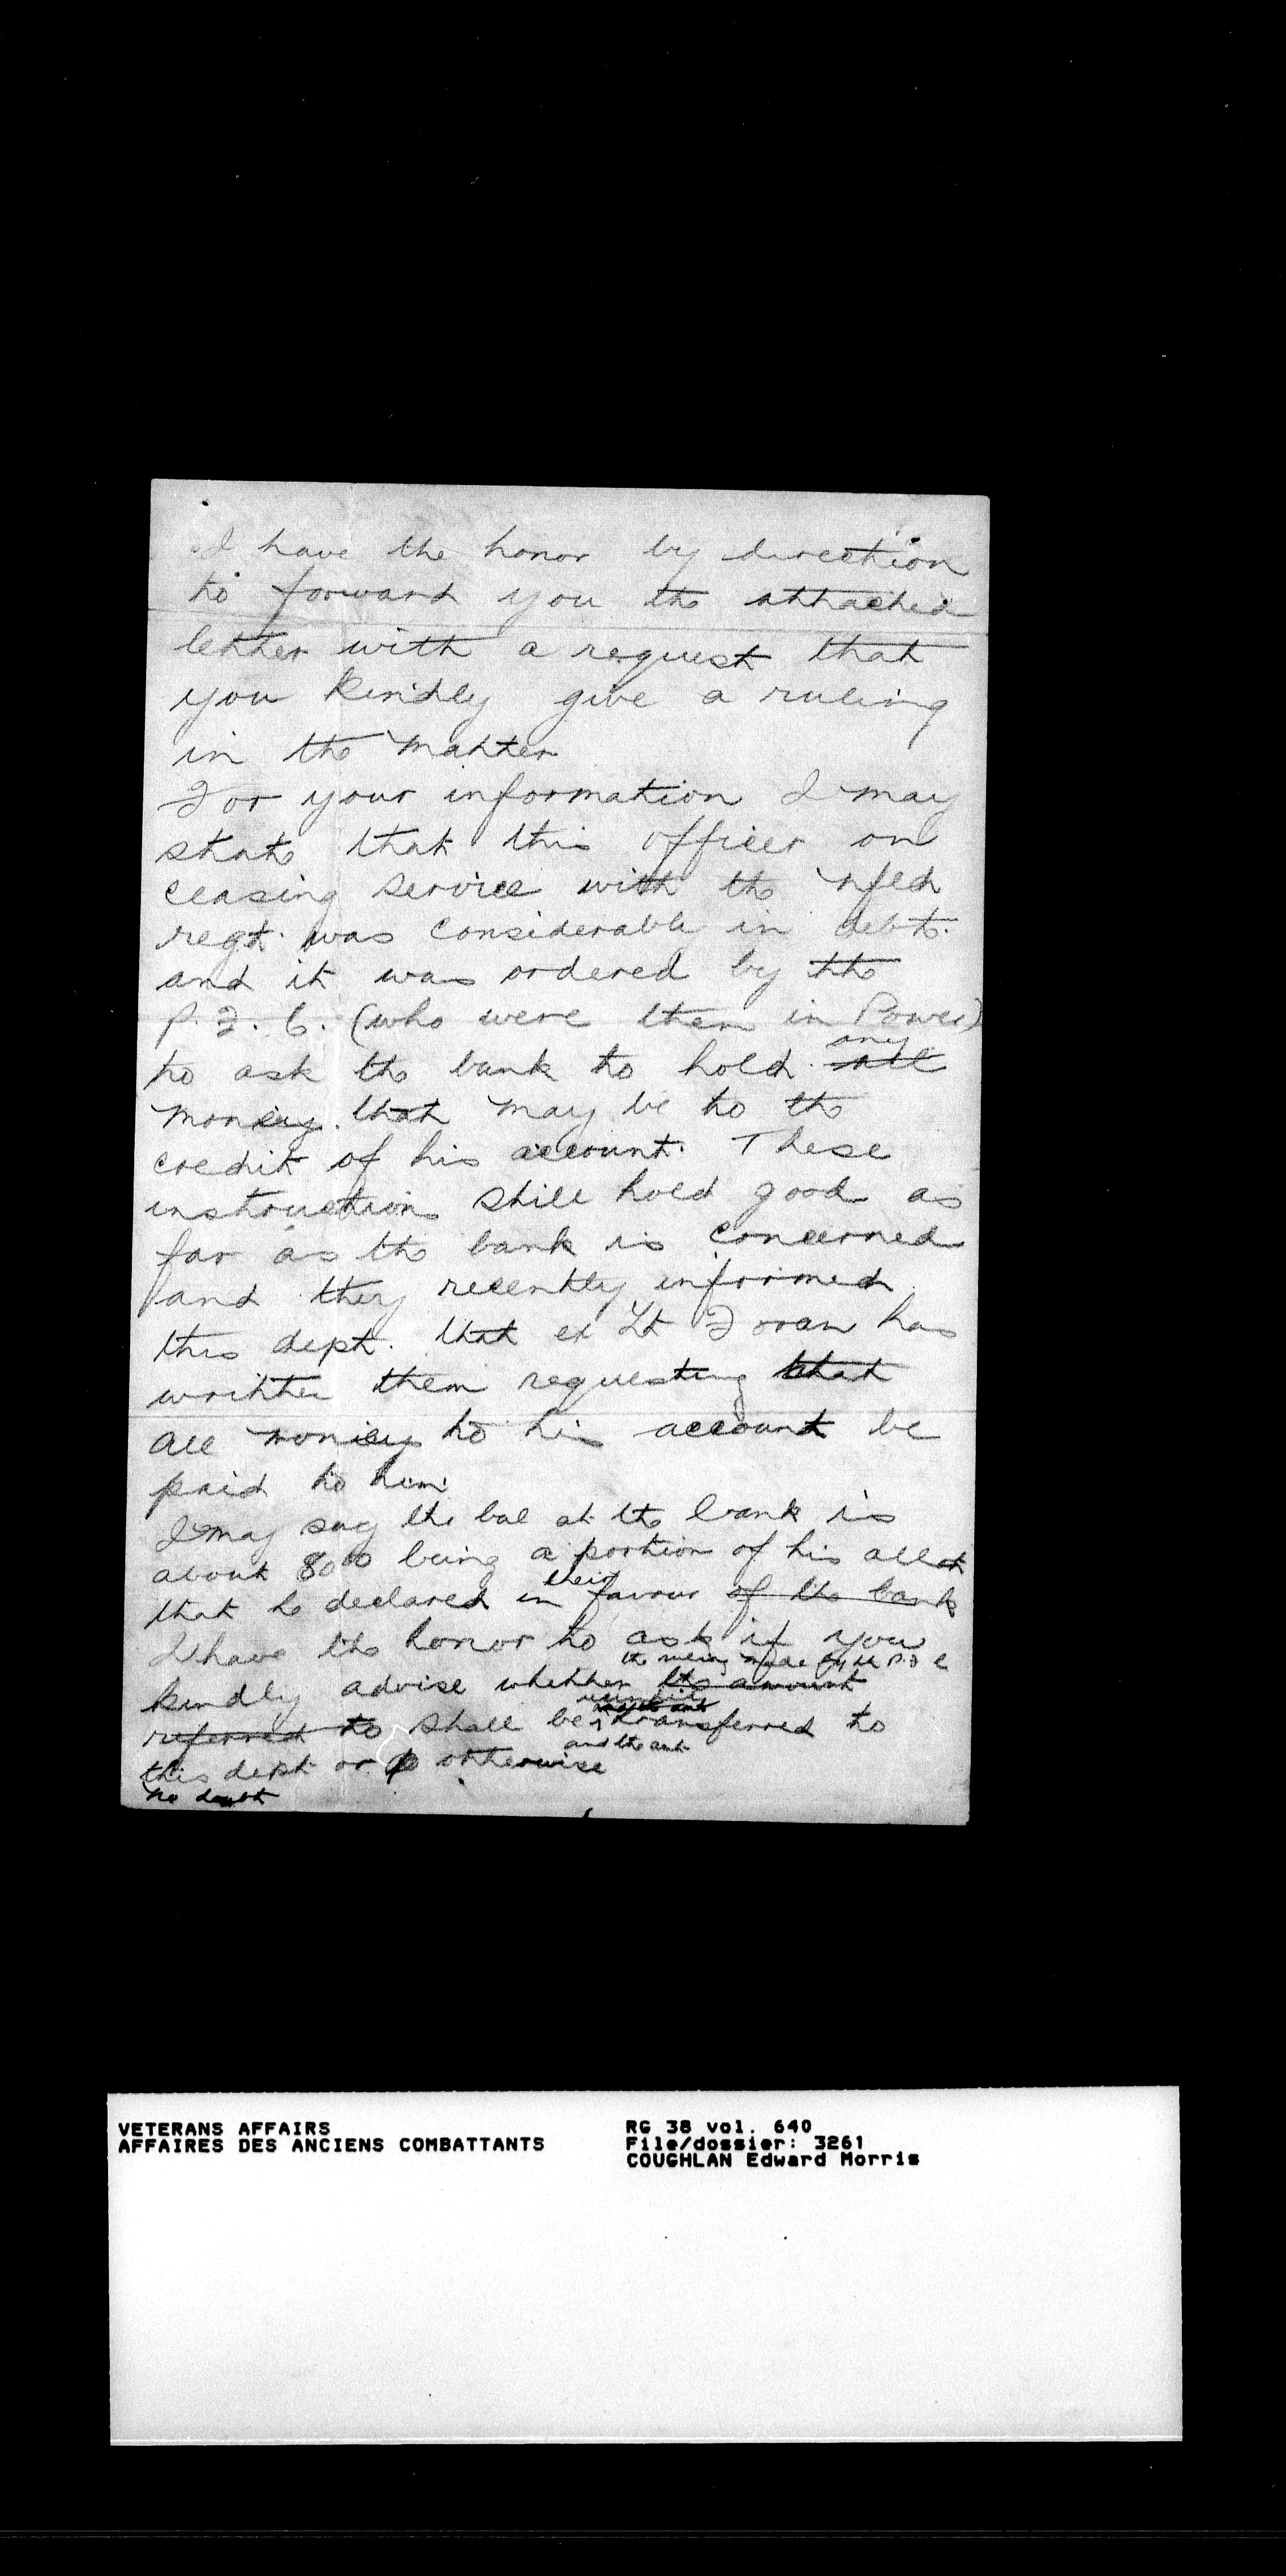 I have the honor by direction
to forward you the attached
letter with a request that
you kindly give a ruling
in the matter
For your information I may
state that this officer on
ceasing service with the nfld
regt. was considerable in debt.
and it was ordered by the
P. F. C. (who were then in Power)
any
to ask the bank to hold all
money that may be to the
credit of his account. These
instructions still hold good as
far as the bank is concerned
and they recently informed
this dept. that ex Lt Foran has
written them requesting that
all money to his account be
paid to him
I may say the bal at the bank is
about 80 00 being a portion of his allot
their
that he declared in favour of the bank
I have the honor to ask if you
the ruling made by the P. F. C
kindly advise whether the amount
referred to shall be transferred to
and the amt
this dept or otherwise
no doubt
VETERANS AFFAIRS
AFFAIRES DES ANCIENS COMBATTANTS
RG 38 vol. 640
File/dossier: 3261
COUGHLAN Edward Morris